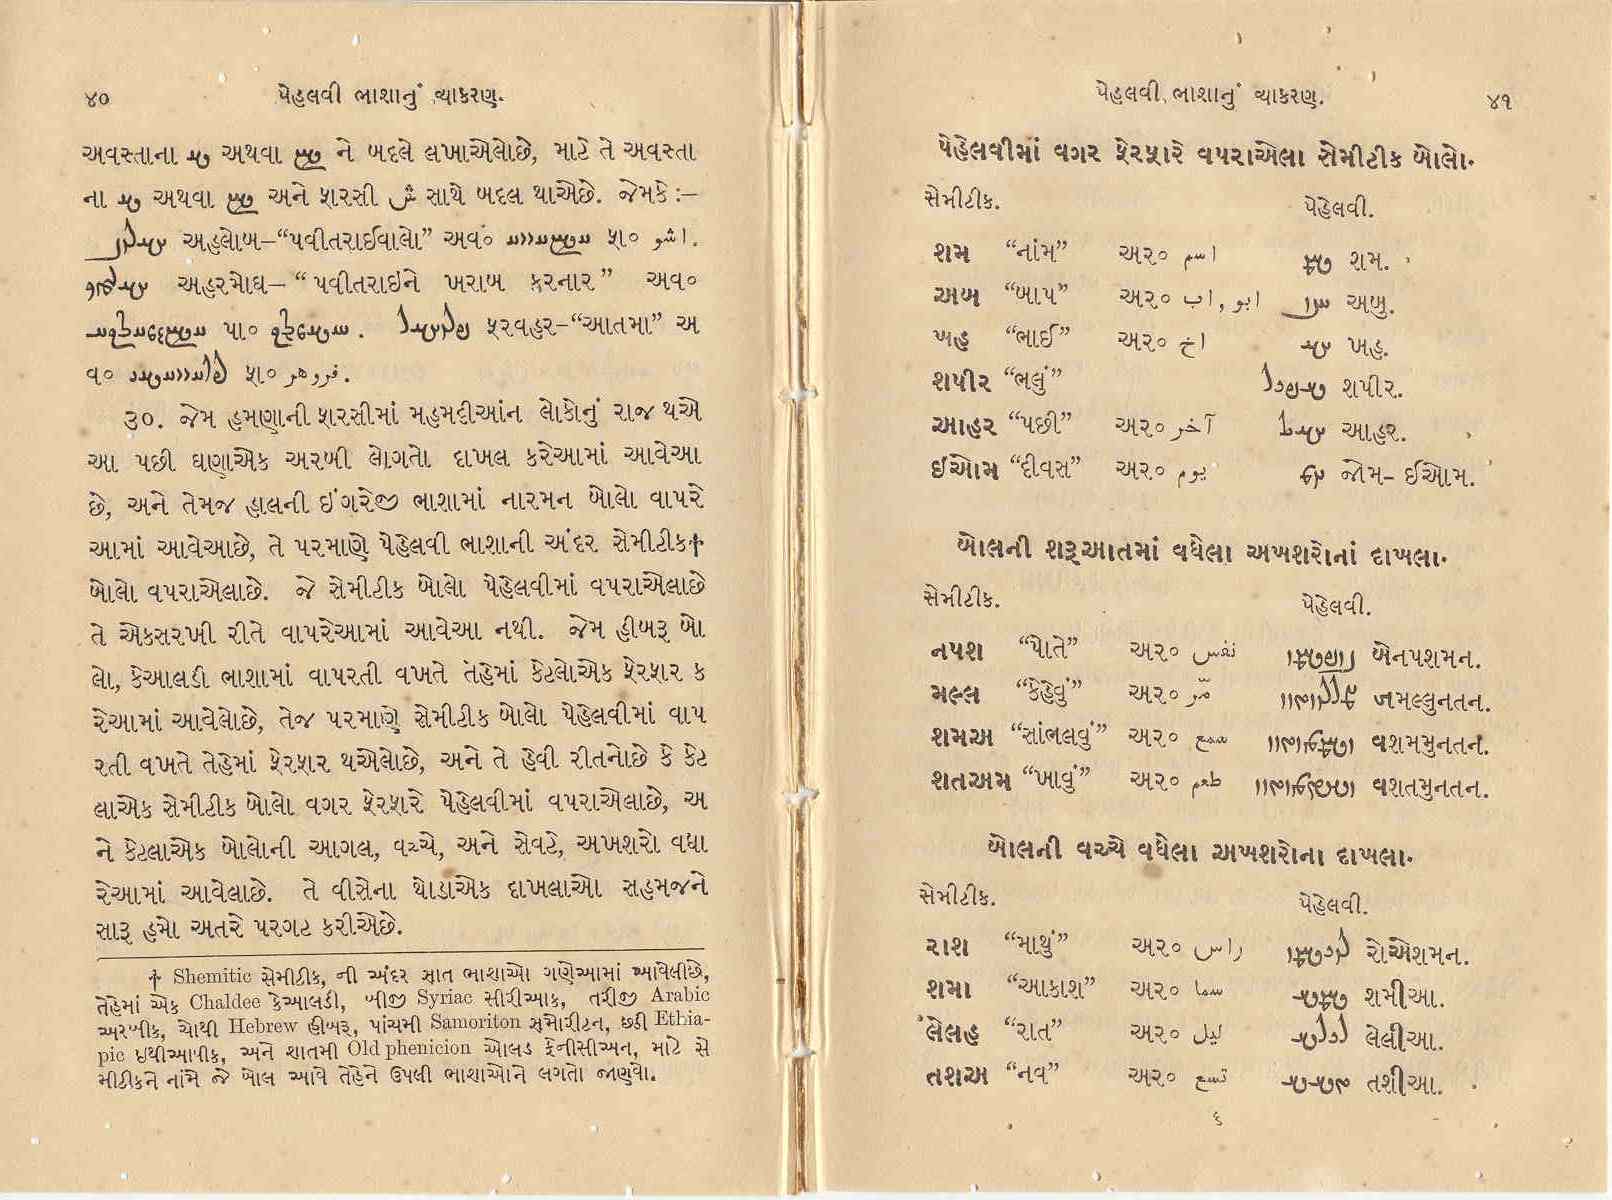 ૪૦
પેહલવી ભાશાનું વ્યાકરણ.
અવસ્તાના અથવા ને બદલે લખાએલોછે, માટે તે અવસ્તા
ના અથવા અને ફારસી ش સાથે બદલ થાએછે. જેમકે :–
અહલોબ–“પવીતરાઈવાલો” અવ૦ ફા૦ اشو .
અહરમોઘ–“પવીતરાઇને ખરાબ કરનાર” અવ૦
પા૦ . ફરવહર–“આતમા” અ
વ૦ ફા૦ فروهر .
૩૦. જેમ હમણાની ફારસીમાં મહમદીઆંન લોકોનું રાજ થએ
આ પછી ઘણાએક અરબી લોગતો દાખલ કરેઆમાં આવેઆ
છે, અને તેમજ હાલની ઇંગરેજી ભાશામાં નારમન બોલો વાપરે
આમાં આવેઆછે, તે પરમાણે પેહેલવી ભાશાની અંદર સેમીટીક†
બોલો વપરાએલાછે. જે સેમીટીક બોલો પેહેલવીમાં વપરાએલાછે
તે એકસરખી રીતે વાપરેઆમાં આવેઆ નથી. જેમ હીબરૂ બો
લો, કેઆલડી ભાશામાં વાપરતી વખતે તેહેમાં કેટલોએક ફેરફાર ક
રેઆમાં આવેલોછે, તેજ પરમાણે સેમીટીક બોલો પેહેલવીમાં વાપ
રતી વખતે તેહેમાં ફેરફાર થએલોછે, અને તે હેવી રીતનોછે કે કેટ
લાએક સેમીટીક બોલો વગર ફેરફારે પેહેલવીમાં વપરાએલાછે, અ
ને કેટલાએક બોલોની આગલ, વચ્ચે, અને સેવટે, અખશરો વધા
રેઆમાં આવેલાછે. તે વીસેના થોડાએક દાખલાઓ સહમજને
સારૂ હમો અતરે પરગટ કરીએછે.
† Shemitic સેમીટીક, ની અંદર સાત ભાશાઓ ગણેઆમાં આવેલીછે,
તેહેમાં એક Chaldee કેઆલડી, બીજી Syriac સીરીઆક, તરીજી Arabic
અરબીક, ચોથી Hebrew હીબરૂ, પાંચમી Samoriton સમોરીટન, છઠી Ethia-
pic ઇથીઆપીક, અને શાતમી Old phenicion ઓલડ ફેનીસીઅન, માટે સે
મીટીકને નાંમે જે બોલ આવે તેહેને ઉપલી ભાશાઓને લગતો જાણવો.
પેહલવી ભાશાનું વ્યાકરણ.
૪૧
પેહેલવીમાં વગર ફેરફારે વપરાએલા સેમીટીક બોલો.
સેમીટીક. પેહેલવી.
શમ “નાંમ” અર૦ اسم શમ.
અબ “બાપ” અર૦ ابو , اب અબુ.
ખહ “ભાઈ” અર૦ اخ ખહ.
શપીર “ભલું” શપીર.
આહર “પછી” અર૦ آخر આહર.
ઈઓમ “દીવસ” અર૦ يوم જોમ– ઈઓમ.
બોલની શરૂઆતમાં વધેલા અખશરોનાં દાખલા.
સેમીટીક. પેહેલવી.
નપશ “પોતે” અર૦ نفس બેનપશમન.
મલ્લ “કેહેવું” અર૦ જમલ્લુનતન.
શમઅ “સાંભલવું” અર૦ سمع વશમમુનતન.
શતઅમ “ખાવું” અર૦ વશતમુનતન.
બોલની વચ્ચે વધેલા અખશરોના દાખલા.
સેમીટીક. પેહેલવી.
રાશ “માથું” અર૦ راس રોએશમન.
શમા “આકાશ” અર૦ سما શમીઆ.
લેલહ “રાત” અર૦ ليل લેલીઆ.
તશઅ “નવ” અર૦ تسع તશીઆ.
૬